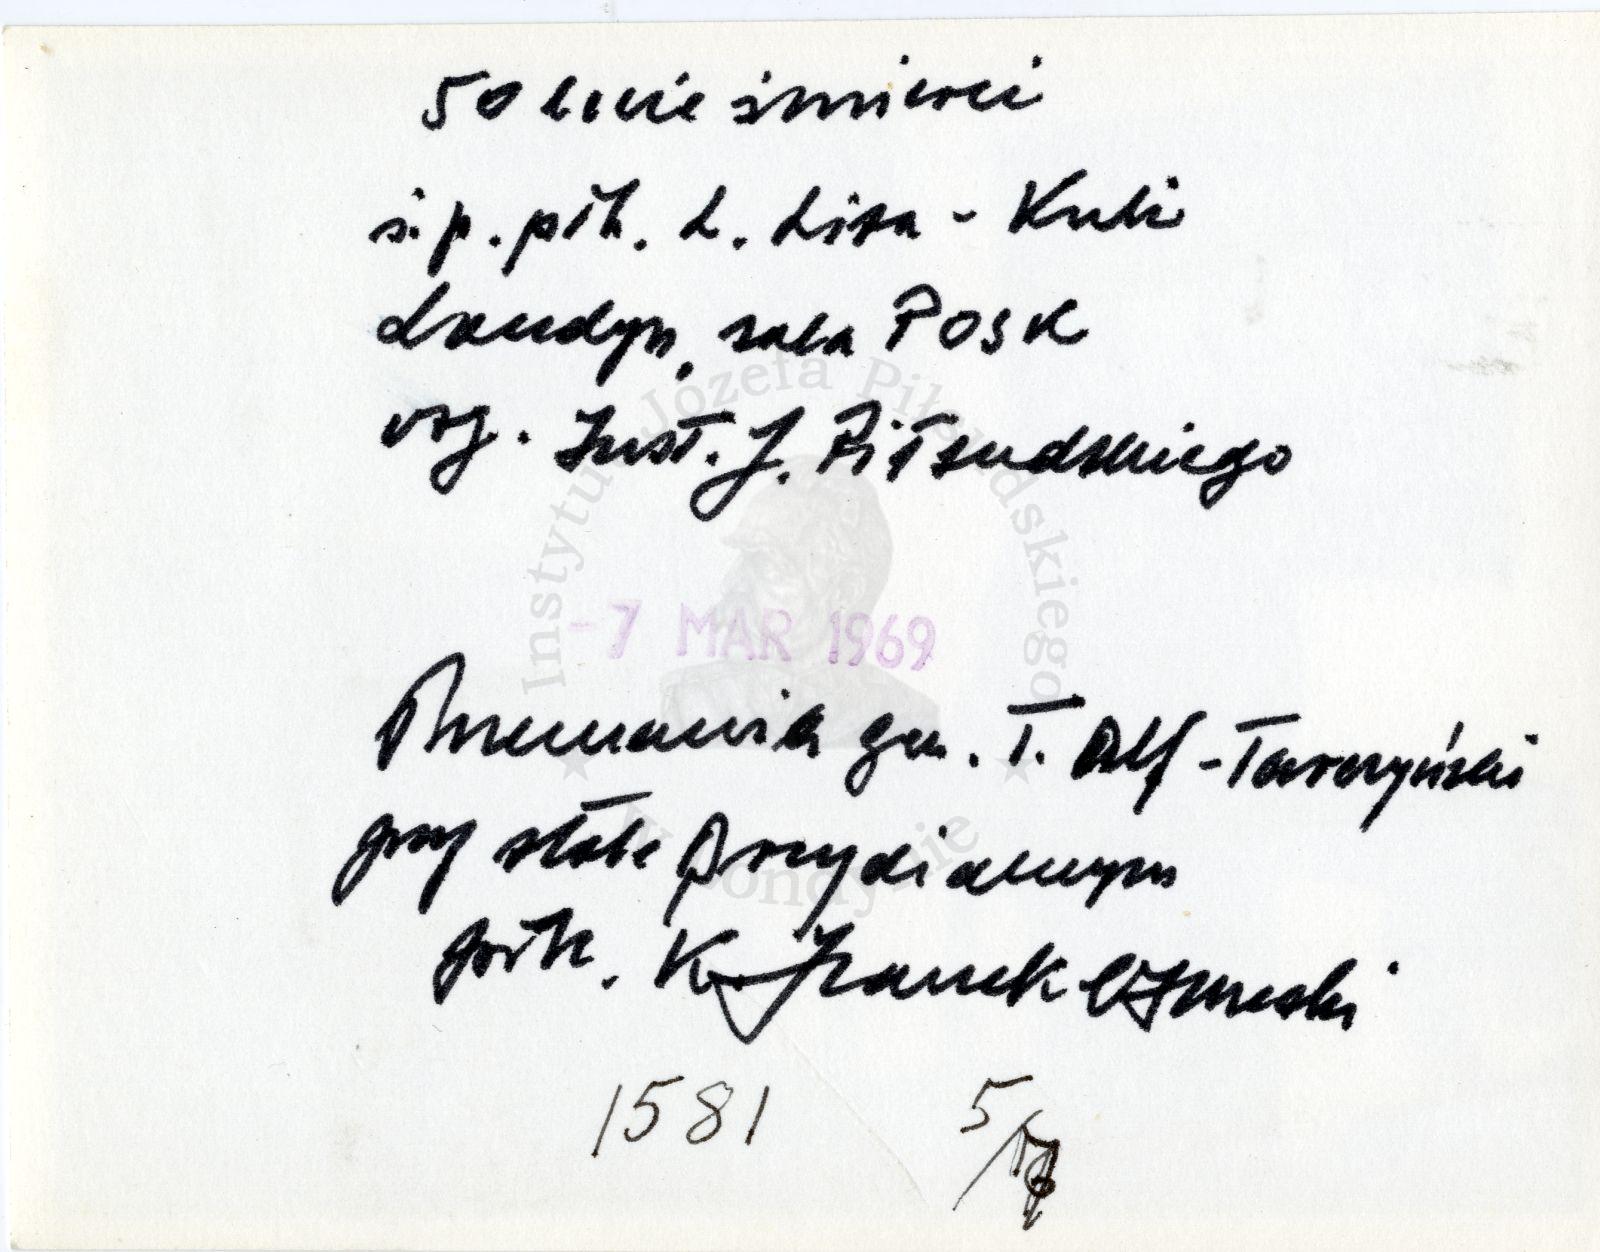 50 lecie śmierci
ś.p. płk. L. Lisa - Kuli
Londyn, sala POSK
org. Inst. J. Piłsudskiego
Instytut Józefa Piłsudskiego
w Londynie
-7 MAR 1969
Przemawia gen. T. Alf-Tarczyński
przy stole prezydialnym
płk. K. Iranek Osmecki
1581
5/